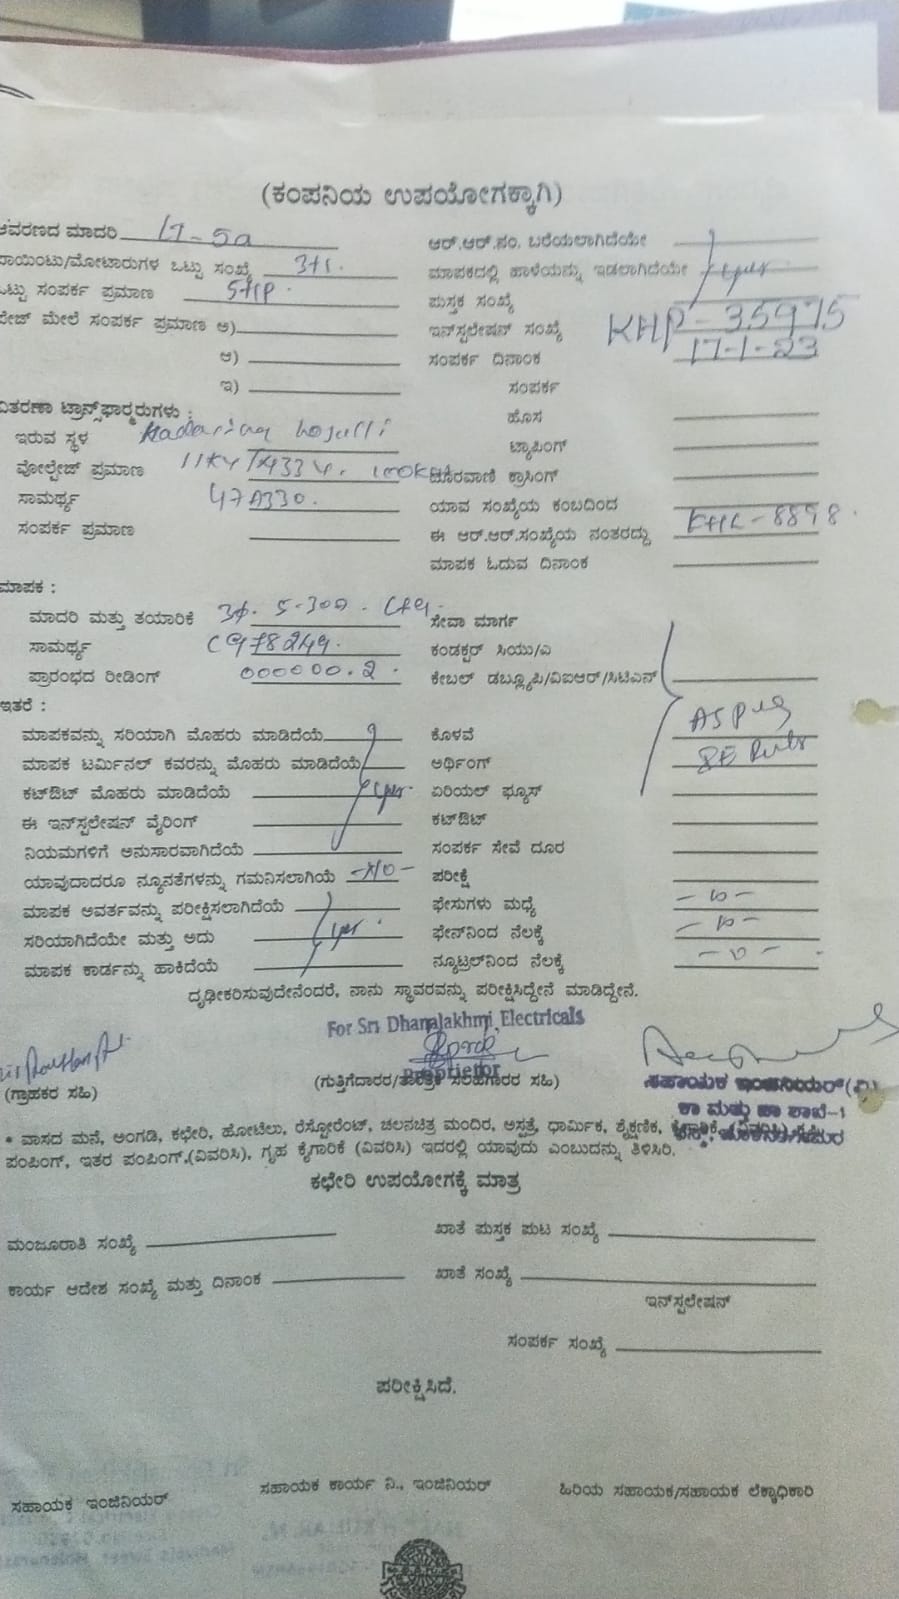 (ಕಂಪನಿಯ ಉಪಯೋಗಕ್ಕಾಗಿ)
ಆವರಣದ ಮಾದರಿ LT-5a
ಆರ್.ಆರ್.ನಂ. ಬರೆಯಲಾಗಿದೆಯೇ
ಪಾಯಿಂಟು/ಮೋಟಾರುಗಳ ಒಟ್ಟು ಸಂಖ್ಯೆ
ಮಾಪಕದಲ್ಲಿ ಹಾಳೆಯನ್ನು ಇಡಲಾಗಿದೆಯೇ yes
ಒಟ್ಟು ಸಂಪರ್ಕ ಪ್ರಮಾಣ 5HP.
ಪುಸ್ತಕ ಸಂಖ್ಯೆ
ಪೇಜ್ ಮೇಲೆ ಸಂಪರ್ಕ ಪ್ರಮಾಣ ಅ)
ಇನ್‌ಸ್ಟಲೇಷನ್ ಸಂಖ್ಯೆ KHP-35975
ಆ)
ಸಂಪರ್ಕ ದಿನಾಂಕ 17-1-23
ಇ)
ಸಂಪರ್ಕ
ವಿತರಣಾ ಟ್ರಾನ್ಸ್‌ಫಾರ್ಮರುಗಳು :
ಹೊಸ
ಇರುವ ಸ್ಥಳ
ಟ್ಯಾಪಿಂಗ್
ವೋಲ್ಟೇಜ್ ಪ್ರಮಾಣ
ದೂರವಾಣಿ ಕ್ರಾಸಿಂಗ್
ಸಾಮರ್ಥ್ಯ
ಯಾವ ಸಂಖ್ಯೆಯ ಕಂಬದಿಂದ
ಸಂಪರ್ಕ ಪ್ರಮಾಣ
ಈ ಆರ್.ಆರ್.ಸಂಖ್ಯೆಯ ನಂತರದ್ದು
ಮಾಪಕ ಓದುವ ದಿನಾಂಕ
ಮಾಪಕ :
ಮಾದರಿ ಮತ್ತು ತಯಾರಿಕೆ
ಸೇವಾ ಮಾರ್ಗ
ಸಾಮರ್ಥ್ಯ
ಕಂಡಕ್ಟರ್ ಸಿಯು/ಎ
ಪ್ರಾರಂಭದ ರೀಡಿಂಗ್ 000000.2
ಕೇಬಲ್ ಡಬ್ಲ್ಯೂಪಿ/ವಿಐಆರ್/ಸಿಟಿಎನ್
ಇತರೆ :
ಮಾಪಕವನ್ನು ಸರಿಯಾಗಿ ಮೊಹರು ಮಾಡಿದೆಯೆ
ಕೊಳವೆ
ಮಾಪಕ ಟರ್ಮಿನಲ್ ಕವರನ್ನು ಮೊಹರು ಮಾಡಿದೆಯೆ
ಅರ್ಥಿಂಗ್
ಕಟ್‌ಔಟ್ ಮೊಹರು ಮಾಡಿದೆಯೆ yes.
ಏರಿಯಲ್ ಫ್ಯೂಸ್
ಈ ಇನ್‌ಸ್ಟಲೇಷನ್ ವೈರಿಂಗ್
ಕಟ್‌ಔಟ್
ನಿಯಮಗಳಿಗೆ ಅನುಸಾರವಾಗಿದೆಯೆ
ಸಂಪರ್ಕ ಸೇವೆ ದೂರ
ಯಾವುದಾದರೂ ನ್ಯೂನತೆಗಳನ್ನು ಗಮನಿಸಲಾಗಿಯೆ -NO-
ಪರೀಕ್ಷೆ
ಮಾಪಕ ಅವರ್ತವನ್ನು ಪರೀಕ್ಷಿಸಲಾಗಿದೆಯೆ
ಫೇಸುಗಳು ಮಧ್ಯೆ
ಸರಿಯಾಗಿದೆಯೇ ಮತ್ತು ಅದು yes.
ಫೇಸ್‌ನಿಂದ ನೆಲಕ್ಕೆ
ಮಾಪಕ ಕಾರ್ಡನ್ನು ಹಾಕಿದೆಯೆ
ನ್ಯೂಟ್ರಲ್‌ನಿಂದ ನೆಲಕ್ಕೆ
ದೃಢೀಕರಿಸುವುದೇನೆಂದರೆ, ನಾನು ಸ್ಥಾವರವನ್ನು ಪರೀಕ್ಷಿಸಿದ್ದೇನೆ ಮಾಡಿದ್ದೇನೆ.
For Sri Dhanalakhmi Electricals
Proprietor
(ಗ್ರಾಹಕರ ಸಹಿ)
(ಗುತ್ತಿಗೆದಾರರ/ತಾಂತ್ರಿಕ ಸಲಹಗಾರರ ಸಹಿ)
ಸಹಾಯಕ ಇಂಜಿನಿಯರ್(ವಿ)
ಕಾ ಮತ್ತು ಪಾ ಶಾಖೆ-1
• ವಾಸದ ಮನೆ, ಅಂಗಡಿ, ಕಛೇರಿ, ಹೋಟೆಲು, ರೆಸ್ಟೋರೆಂಟ್, ಚಲನಚಿತ್ರ ಮಂದಿರ, ಅಸ್ಪತ್ರೆ, ಧಾರ್ಮಿಕ, ಶೈಕ್ಷಣಿಕ, ಕೈಗಾರಿಕೆ, (ವಿವರಿಸಿ)
ಪಂಪಿಂಗ್, ಇತರ ಪಂಪಿಂಗ್,(ವಿವರಿಸಿ), ಗೃಹ ಕೈಗಾರಿಕೆ (ವಿವರಿಸಿ) ಇದರಲ್ಲಿ ಯಾವುದು ಎಂಬುದನ್ನು ತಿಳಿಸಿರಿ.
ಕಛೇರಿ ಉಪಯೋಗಕ್ಕೆ ಮಾತ್ರ
ಮಂಜೂರಾತಿ ಸಂಖ್ಯೆ
ಖಾತೆ ಪುಸ್ತಕ ಪುಟ ಸಂಖ್ಯೆ
ಕಾರ್ಯ ಆದೇಶ ಸಂಖ್ಯೆ ಮತ್ತು ದಿನಾಂಕ
ಖಾತೆ ಸಂಖ್ಯೆ
ಇನ್‌ಸ್ಟಲೇಷನ್
ಸಂಪರ್ಕ ಸಂಖ್ಯೆ
ಪರೀಕ್ಷಿಸಿದೆ.
ಸಹಾಯಕ ಇಂಜಿನಿಯರ್
ಸಹಾಯಕ ಕಾರ್ಯ ನಿ., ಇಂಜಿನಿಯರ್
ಹಿರಿಯ ಸಹಾಯಕ/ಸಹಾಯಕ ಲೆಕ್ಕಾಧಿಕಾರಿ